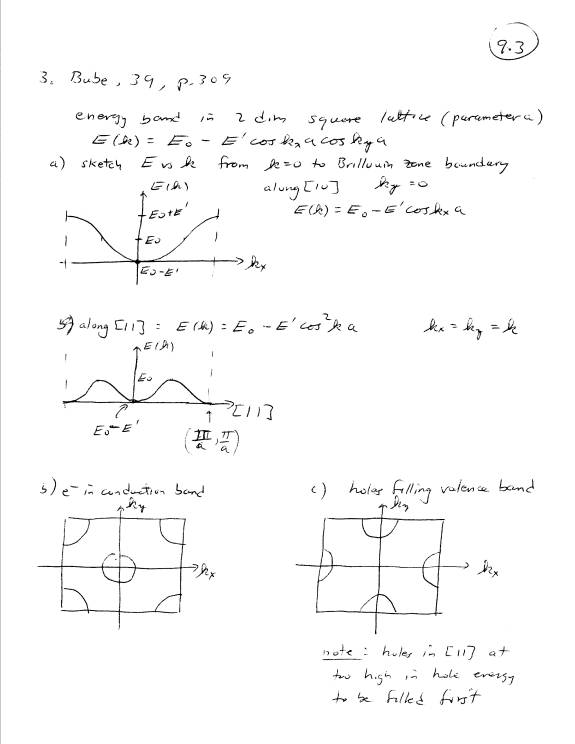 9.3
3. Bube, 39, p. 309
energy band in 2 dim square lattice (parameter a)
E(k) = E₀ - E' cos kₓa cos k_y a
a) sketch E vs k from k=0 to Brillouin zone boundary
E(k) along [10] k_y = 0
E₀+E' E(k) = E₀ - E' cos kₓ a
E₀
kₓ
E₀-E'
along [11] : E(k) = E₀ - E' cos² k a kₓ = k_y = k
E(k)
E₀
[11]
E₀-E'
(π/a, π/a)
b) e⁻ in conduction band c) holes filling valence band
k_y k_y
kₓ kₓ
note : holes in [11] at
too high in hole energy
to be filled first